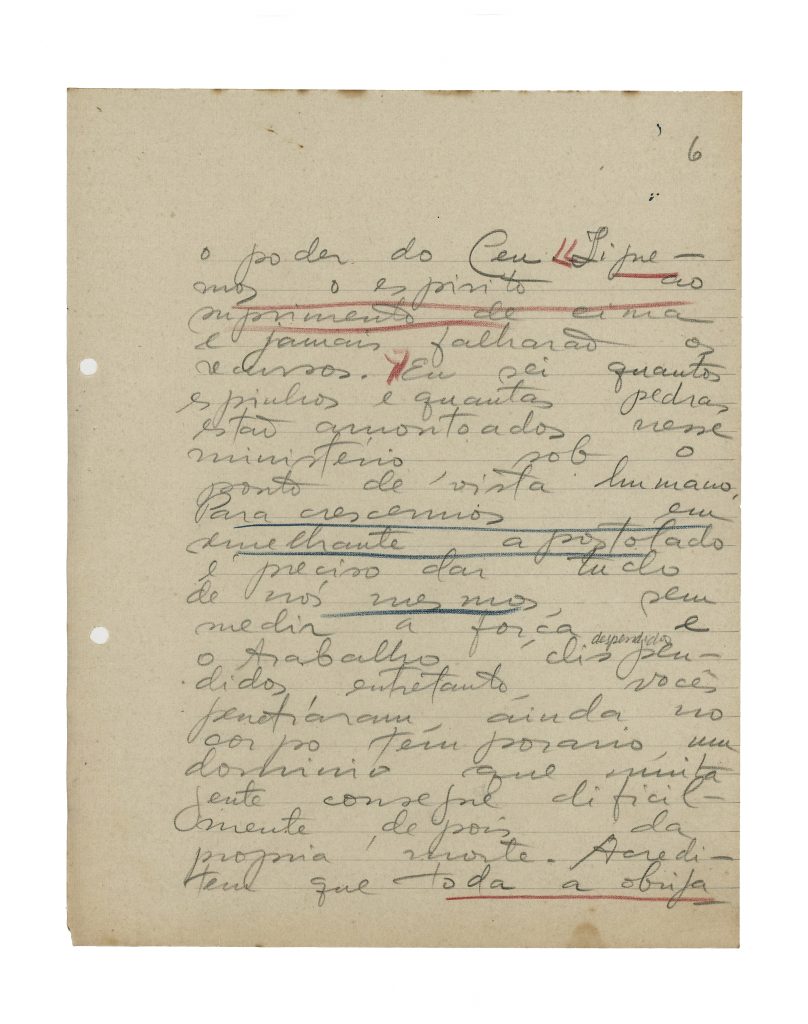 6
o poder do Ceu. «Ligue-
mos o espirito ao
suprimento de cima
e jamais falharão os
recursos.» Eu sei quantos
espinhos e quantas pedras
estão amontoados nesse
ministério sob o
ponto de vista humano.
Para crescermos em
semelhante apostolado
é preciso dar tudo
de nós mesmos, sem
medir a força e
despendida
o trabalho dispen-
didos, entretanto, vocês
penetraram, ainda no
corpo temporario, um
dominio que muita
gente consegue dificil-
mente, depois da
propria morte. Acredi-
tem que toda a obrifa